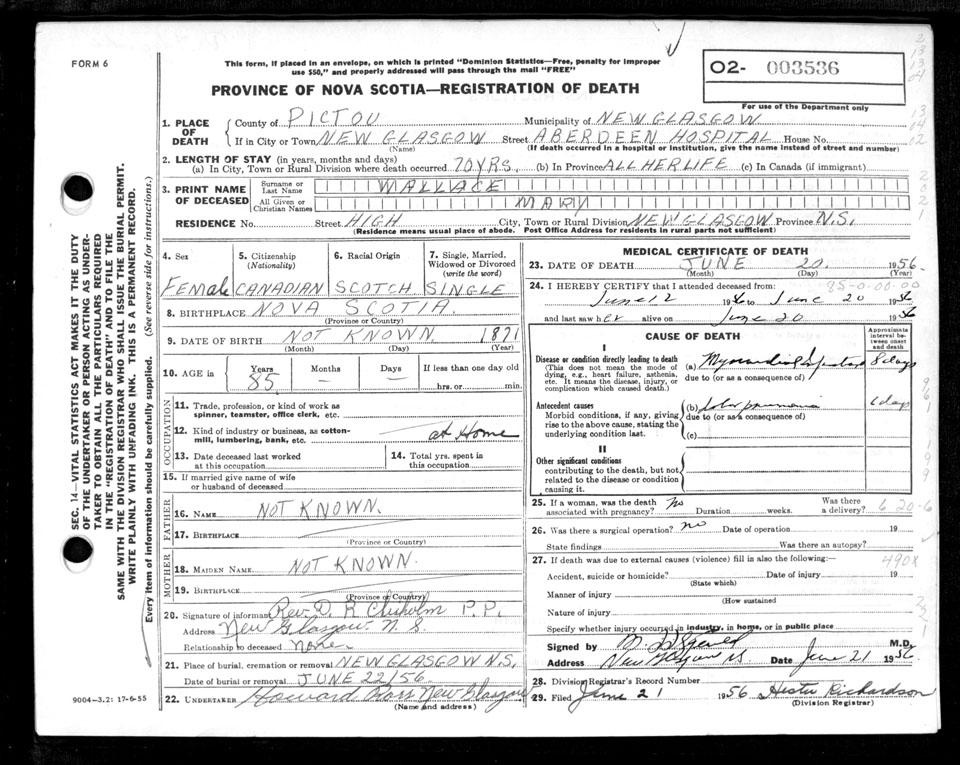 FORM 6
This form, if placed in an envelope, on which is printed "Dominion Statistics—Free, penalty for improper
use $50," and properly addressed will pass through the mail "FREE"
O2- 003536
For use of the Department only
PROVINCE OF NOVA SCOTIA—REGISTRATION OF DEATH
1. PLACE OF DEATH
County of PICTOU Municipality of NEW GLASGOW
If in City or Town NEW GLASGOW Street ABERDEEN HOSPITAL House No.
(Name) (If death occurred in a hospital or institution, give the name instead of street and number)
2. LENGTH OF STAY (in years, months and days)
(a) In City, Town or Rural Division where death occurred 70 YRS. (b) In Province ALL HER LIFE (c) In Canada (if immigrant)
3. PRINT NAME OF DECEASED
Surname or Last Name WALLACE
All Given or Christian Names MARY
RESIDENCE No. Street HIGH City, Town or Rural Division NEW GLASGOW Province N.S.
(Residence means usual place of abode. Post Office Address for residents in rural parts not sufficient)
4. Sex
Female
5. Citizenship
(Nationality)
CANADIAN
6. Racial Origin
SCOTCH
7. Single, Married,
Widowed or Divorced
(write the word)
SINGLE
8. BIRTHPLACE NOVA SCOTIA
(Province or Country)
9. DATE OF BIRTH NOT KNOWN 1871
(Month) (Day) (Year)
10. AGE in
Years Months Days If less than one day
85 — — hrs. or min.
OCCUPATION
11. Trade, profession, or kind of work as
spinner, teamster, office clerk, etc.
12. Kind of industry or business, as cotton-
mill, lumbering, bank, etc. at Home
13. Date deceased last worked
at this occupation
14. Total yrs. spent in
this occupation
15. If married give name of wife
or husband of deceased
FATHER
16. NAME NOT KNOWN.
17. BIRTHPLACE
(Province or Country)
MOTHER
18. MAIDEN NAME NOT KNOWN.
19. BIRTHPLACE
(Province or Country)
20. Signature of informant Rev. D. R. Chisholm P.P.
Address New Glasgow N.S.
Relationship to deceased none
21. Place of burial, cremation or removal NEW GLASGOW N.S.
Date of burial or removal JUNE 22/56
22. UNDERTAKER Howard New Glasgow
(Name and address)
MEDICAL CERTIFICATE OF DEATH
23. DATE OF DEATH JUNE 20. 1956.
(Month) (Day)
24. I HEREBY CERTIFY that I attended deceased from:
85-0-00-00
June 12 1956 to June 20 1956
and last saw her alive on June 20 1956
CAUSE OF DEATH
Approximate
interval be-
tween onset
and death
I
Disease or condition directly leading to death
(This does not mean the mode of
dying, e.g., heart failure, asthenia,
etc. It means the disease, injury, or
complication which caused death.)
(a) Myocardial 8 days
due to (or as a consequence of)
Antecedent causes
Morbid conditions, if any, giving
rise to the above cause, stating the
underlying condition last.
(b) lobar pneumonia days
due to (or as a consequence of)
(c)
II
Other significant conditions
contributing to the death, but not
related to the disease or condition
causing it.
25. If a woman, was the death
associated with pregnancy? no Duration weeks. Was there
a delivery?
26. Was there a surgical operation? no Date of operation 19
State findings Was there an autopsy?
27. If death was due to external causes (violence) fill in also the following:—
490X
Accident, suicide or homicide? Date of injury 19
(State which)
Manner of injury
(How sustained
Nature of injury
Specify whether injury occurred in industry, in home, or in public place
Signed by M.D.
Address New Glasgow NS Date June 21 1956
28. Division Registrar's Record Number
29. Filed June 21 1956 Hester Richardson
(Division Registrar)
SEC. 14—VITAL STATISTICS ACT MAKES IT THE DUTY
OF THE UNDERTAKER OR PERSON ACTING AS UNDER-
TAKER TO OBTAIN ALL THE PARTICULARS REQUIRED
IN THE "REGISTRATION OF DEATH" AND TO FILE THE
SAME WITH THE DIVISION REGISTRAR WHO SHALL ISSUE THE BURIAL PERMIT.
WRITE PLAINLY WITH UNFADING INK. THIS IS A PERMANENT RECORD.
Every item of information should be carefully supplied. (See reverse side for instructions.)
9004-3.21 17-6-55